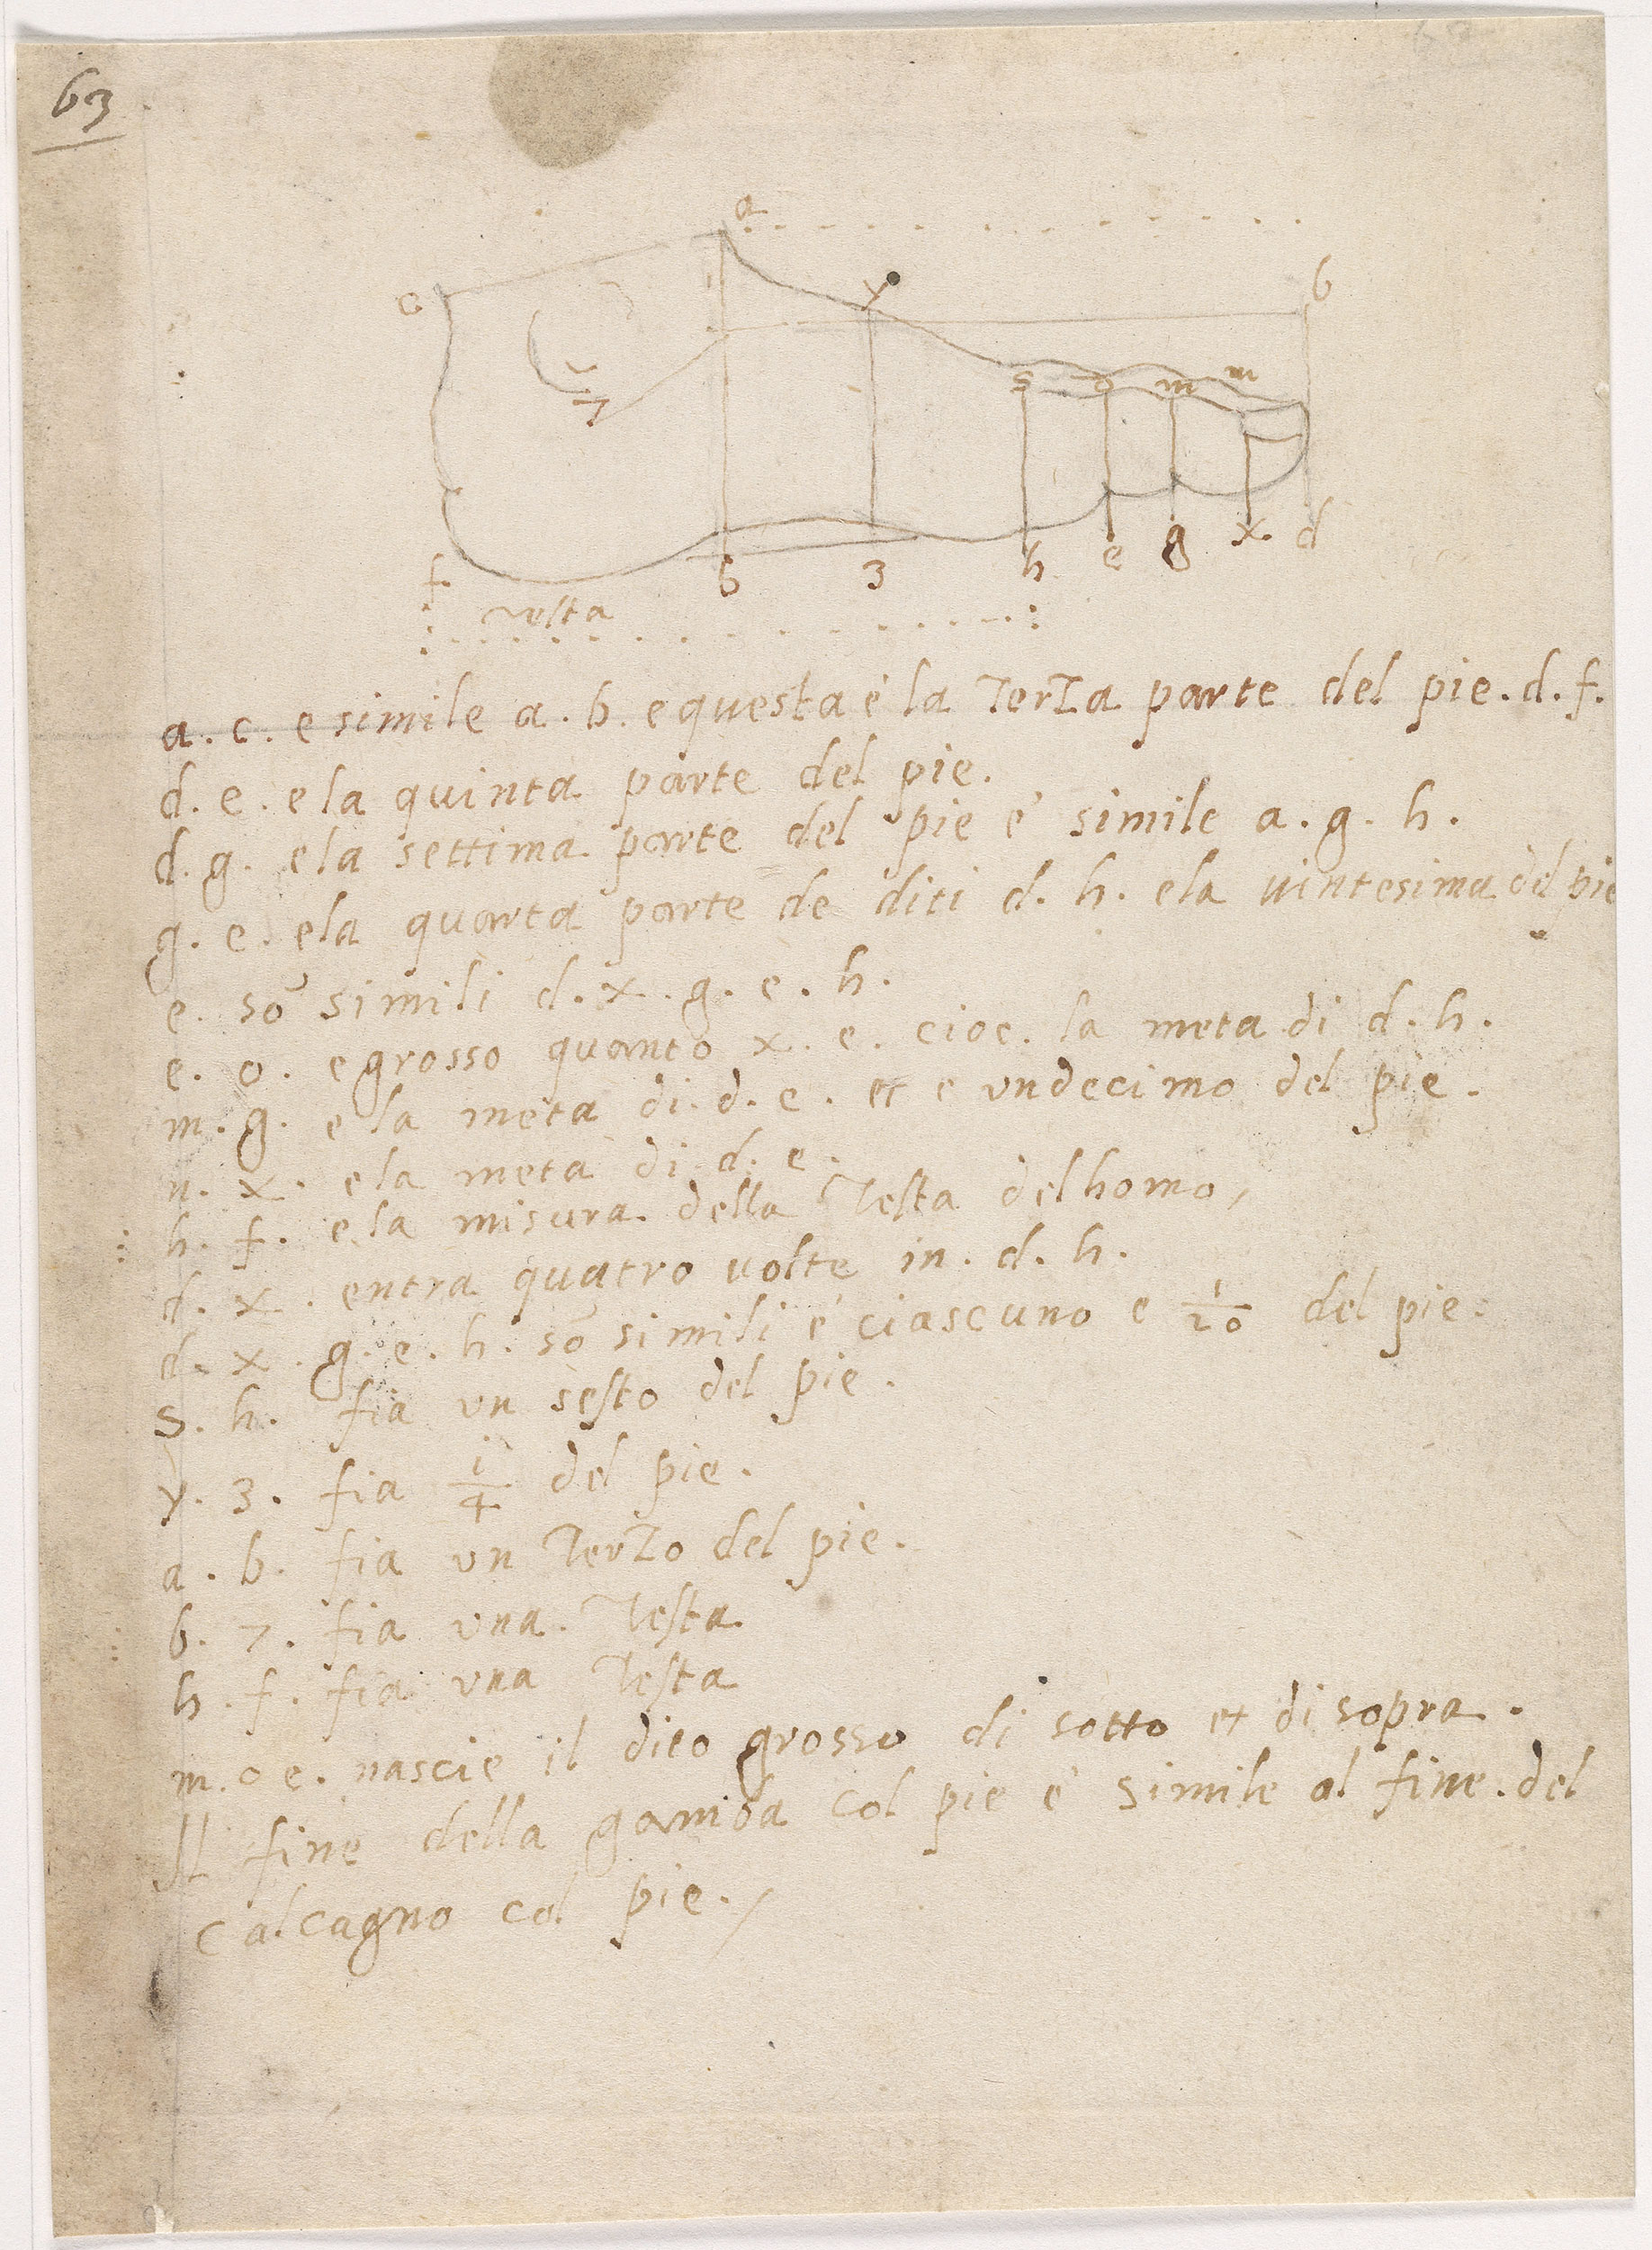 63
a
c
y
b
s o m m
7
f. b 3 h e g x. d
Testa
a. c. e simile a. b. e questa é la TerZa parte del pie. d. f.
d. e. e la quinta parte del pie.
d. g. e la settima parte del pie é simile a. g. h.
g. e. e la quarta parte de diti d. h. e la uintesima del pie
e. sõ simili d. x. g. e. h.
e. o. e grosso quanto x. e. cioe. la meta di d. h.
m. g. e la meta di. d. e. et e undecimo del pie.
n. x. e la meta di d. e.
h. f. e la misura. della Testa delhomo,
d. x. entra quatro uolte in. d. h.
d. x. g. e. h. sõ simili é ciascuno e 1/20 del pie.
S. h. fia vn sesto del pie.
y. 3. fia 1/4 del pie.
a. b. fia vn TerZo del pie.
b. 7. fia vna. Testa.
h. f. fia vna Testa
m. o e. nascie il dito grosso di sotto et di sopra.
Il fine della gamba col pie é simile al fine. del
calcagno col pie./